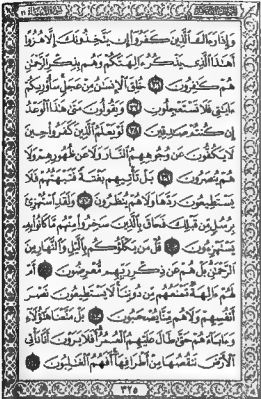 وَإِذَا رَءَاكَ ٱلَّذِينَ كَفَرُوٓا۟ إِن يَتَّخِذُونَكَ إِلَّا هُزُوًا
أَهَٰذَا ٱلَّذِى يَذْكُرُ ءَالِهَتَكُمْ وَهُم بِذِكْرِ ٱلرَّحْمَٰنِ
هُمْ كَٰفِرُونَ ٣٦ خُلِقَ ٱلْإِنسَٰنُ مِنْ عَجَلٍ سَأُو۟رِيكُمْ
ءَايَٰتِى فَلَا تَسْتَعْجِلُونِ ٣٧ وَيَقُولُونَ مَتَىٰ هَٰذَا ٱلْوَعْدُ
إِن كُنتُمْ صَٰدِقِينَ ٣٨ لَوْ يَعْلَمُ ٱلَّذِينَ كَفَرُوا۟ حِينَ
لَا يَكُفُّونَ عَن وُجُوهِهِمُ ٱلنَّارَ وَلَا عَن ظُهُورِهِمْ وَلَا
هُمْ يُنصَرُونَ ٣٩ بَلْ تَأْتِيهِم بَغْتَةً فَتَبْهَتُهُمْ فَلَا
يَسْتَطِيعُونَ رَدَّهَا وَلَا هُمْ يُنظَرُونَ ٤٠ وَلَقَدِ ٱسْتُهْزِئَ
بِرُسُلٍ مِّن قَبْلِكَ فَحَاقَ بِٱلَّذِينَ سَخِرُوا۟ مِنْهُم مَّا كَانُوا۟ بِهِۦ
يَسْتَهْزِءُونَ ٤١ قُلْ مَن يَكْلَؤُكُم بِٱلَّيْلِ وَٱلنَّهَارِ مِنَ
ٱلرَّحْمَٰنِ بَلْ هُمْ عَن ذِكْرِ رَبِّهِم مُّعْرِضُونَ ٤٢ أَمْ
لَهُمْ ءَالِهَةٌ تَمْنَعُهُم مِّن دُونِنَا لَا يَسْتَطِيعُونَ نَصْرَ
أَنفُسِهِمْ وَلَا هُم مِّنَّا يُصْحَبُونَ ٤٣ بَلْ مَتَّعْنَا هَٰٓؤُلَآءِ
وَءَابَآءَهُمْ حَتَّىٰ طَالَ عَلَيْهِمُ ٱلْعُمُرُ أَفَلَا يَرَوْنَ أَنَّا نَأْتِى
ٱلْأَرْضَ نَنقُصُهَا مِنْ أَطْرَافِهَآ أَفَهُمُ ٱلْغَٰلِبُونَ ٤٤
٣٢٥